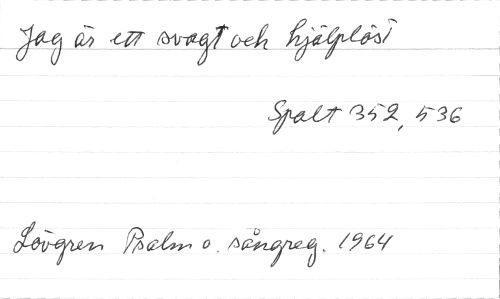 Jag är ett svagt och hjälplöst
Spalt 352, 536
Lövgren Psalm o. sångreg. 1964